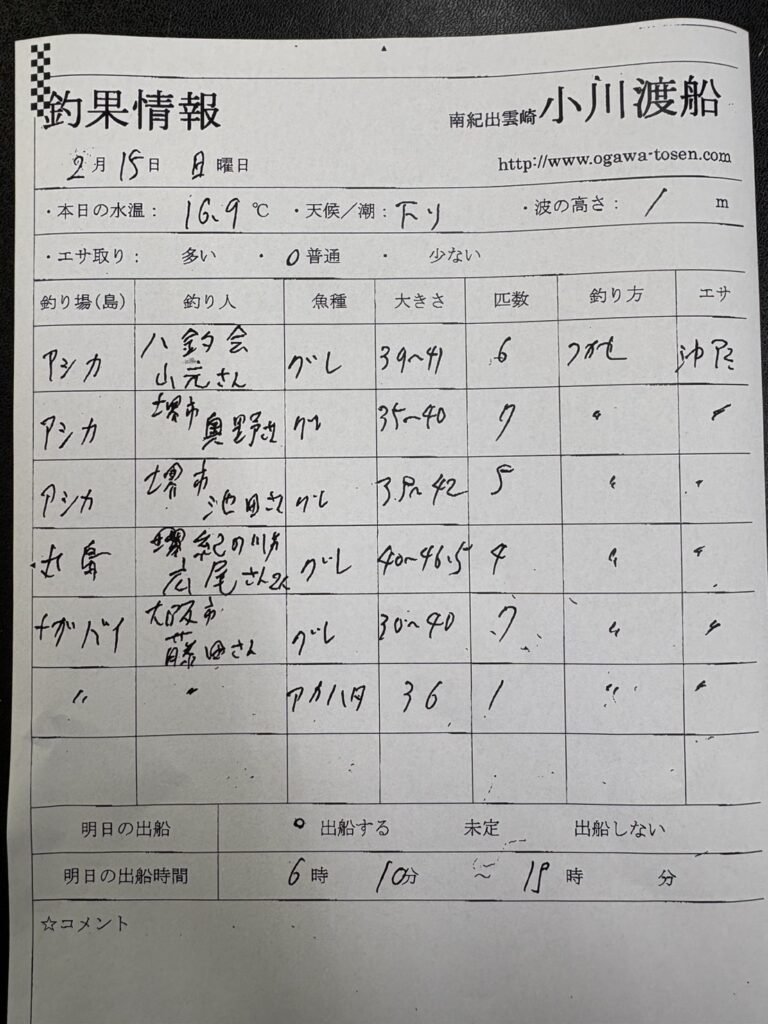 釣果情報
南紀出雲崎 小川渡船
2月 15日 日曜日
http://www.ogawa-tosen.com
・本日の水温： 16.9 ℃ ・天候／潮：下り ・波の高さ： 1 m
・エサ取り： 多い ・ ○普通 ・ 少ない
釣り場(島) 釣り人 魚種 大きさ 匹数 釣り方 エサ
アシカ 八釣会 山元さん グレ 39〜41 6 フカセ 沖アミ
アシカ 堺市 奥野さん グレ 35〜40 7 〃 〃
アシカ 堺市 池田さん グレ 35〜42 5 〃 〃
紀の川市 広尾さん2人 グレ 40〜46.5 4 〃 〃
ナガバイ 大阪市 藤田さん グレ 30〜40 7 〃 〃
〃 〃 アカハタ 36 1 〃 〃
明日の出船 ○ 出船する 未定 出船しない
明日の出船時間 6時 10分 〜 15時 分
☆コメント